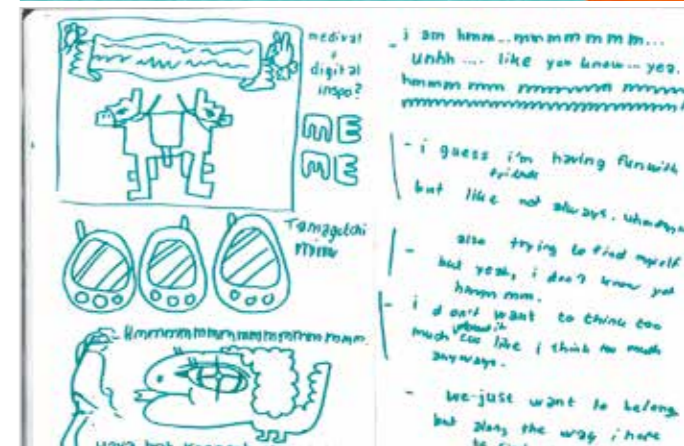 medival
+
digital
inspo?
ME
ME
Tamagotchi
Hmmmmmmmmmmmmmmmmm.
- i am hmm...mmmmmmm...
Uhhh .... like you know... yea.
hmmmm mmm
- i guess i'm having fun with
friends
but like not always.
- also trying to find myself
but yeah, i don't know yet
hmmm mm.
- i don't want to think too
much about it
like i think too much
anyways.
- we just want to belong
but along the way i hope